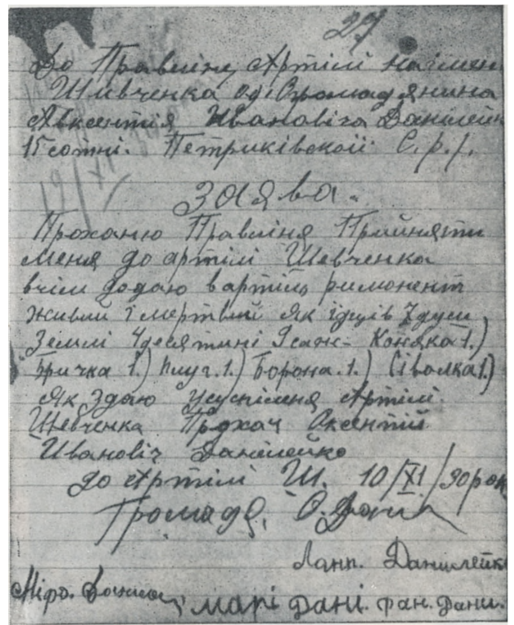 27
До Правлінє Артілі на імен
Шивченка од Громадянина
Авксентія Ивановіча Данілейк
15 сотні. Петриківской С. р.
19/XI
Заява.
Проханю Правліня Прийняти
меня до артілі Шевченка
вчім додаю в артіль римонент
живий і мертвий Як їдців 7 душ
Землі 4 десятини Коняка 1.)
Бричка 1.) Плуг. 1.) Борона. 1.) Сівалка 1.)
Як здаю Артілі
Шевченка Прохач Оксентій
Ивановіч Данілейко
до Артілі Ш. 10/XI/30 рок
Громада,
Данілейк
марі Дані. Дани.